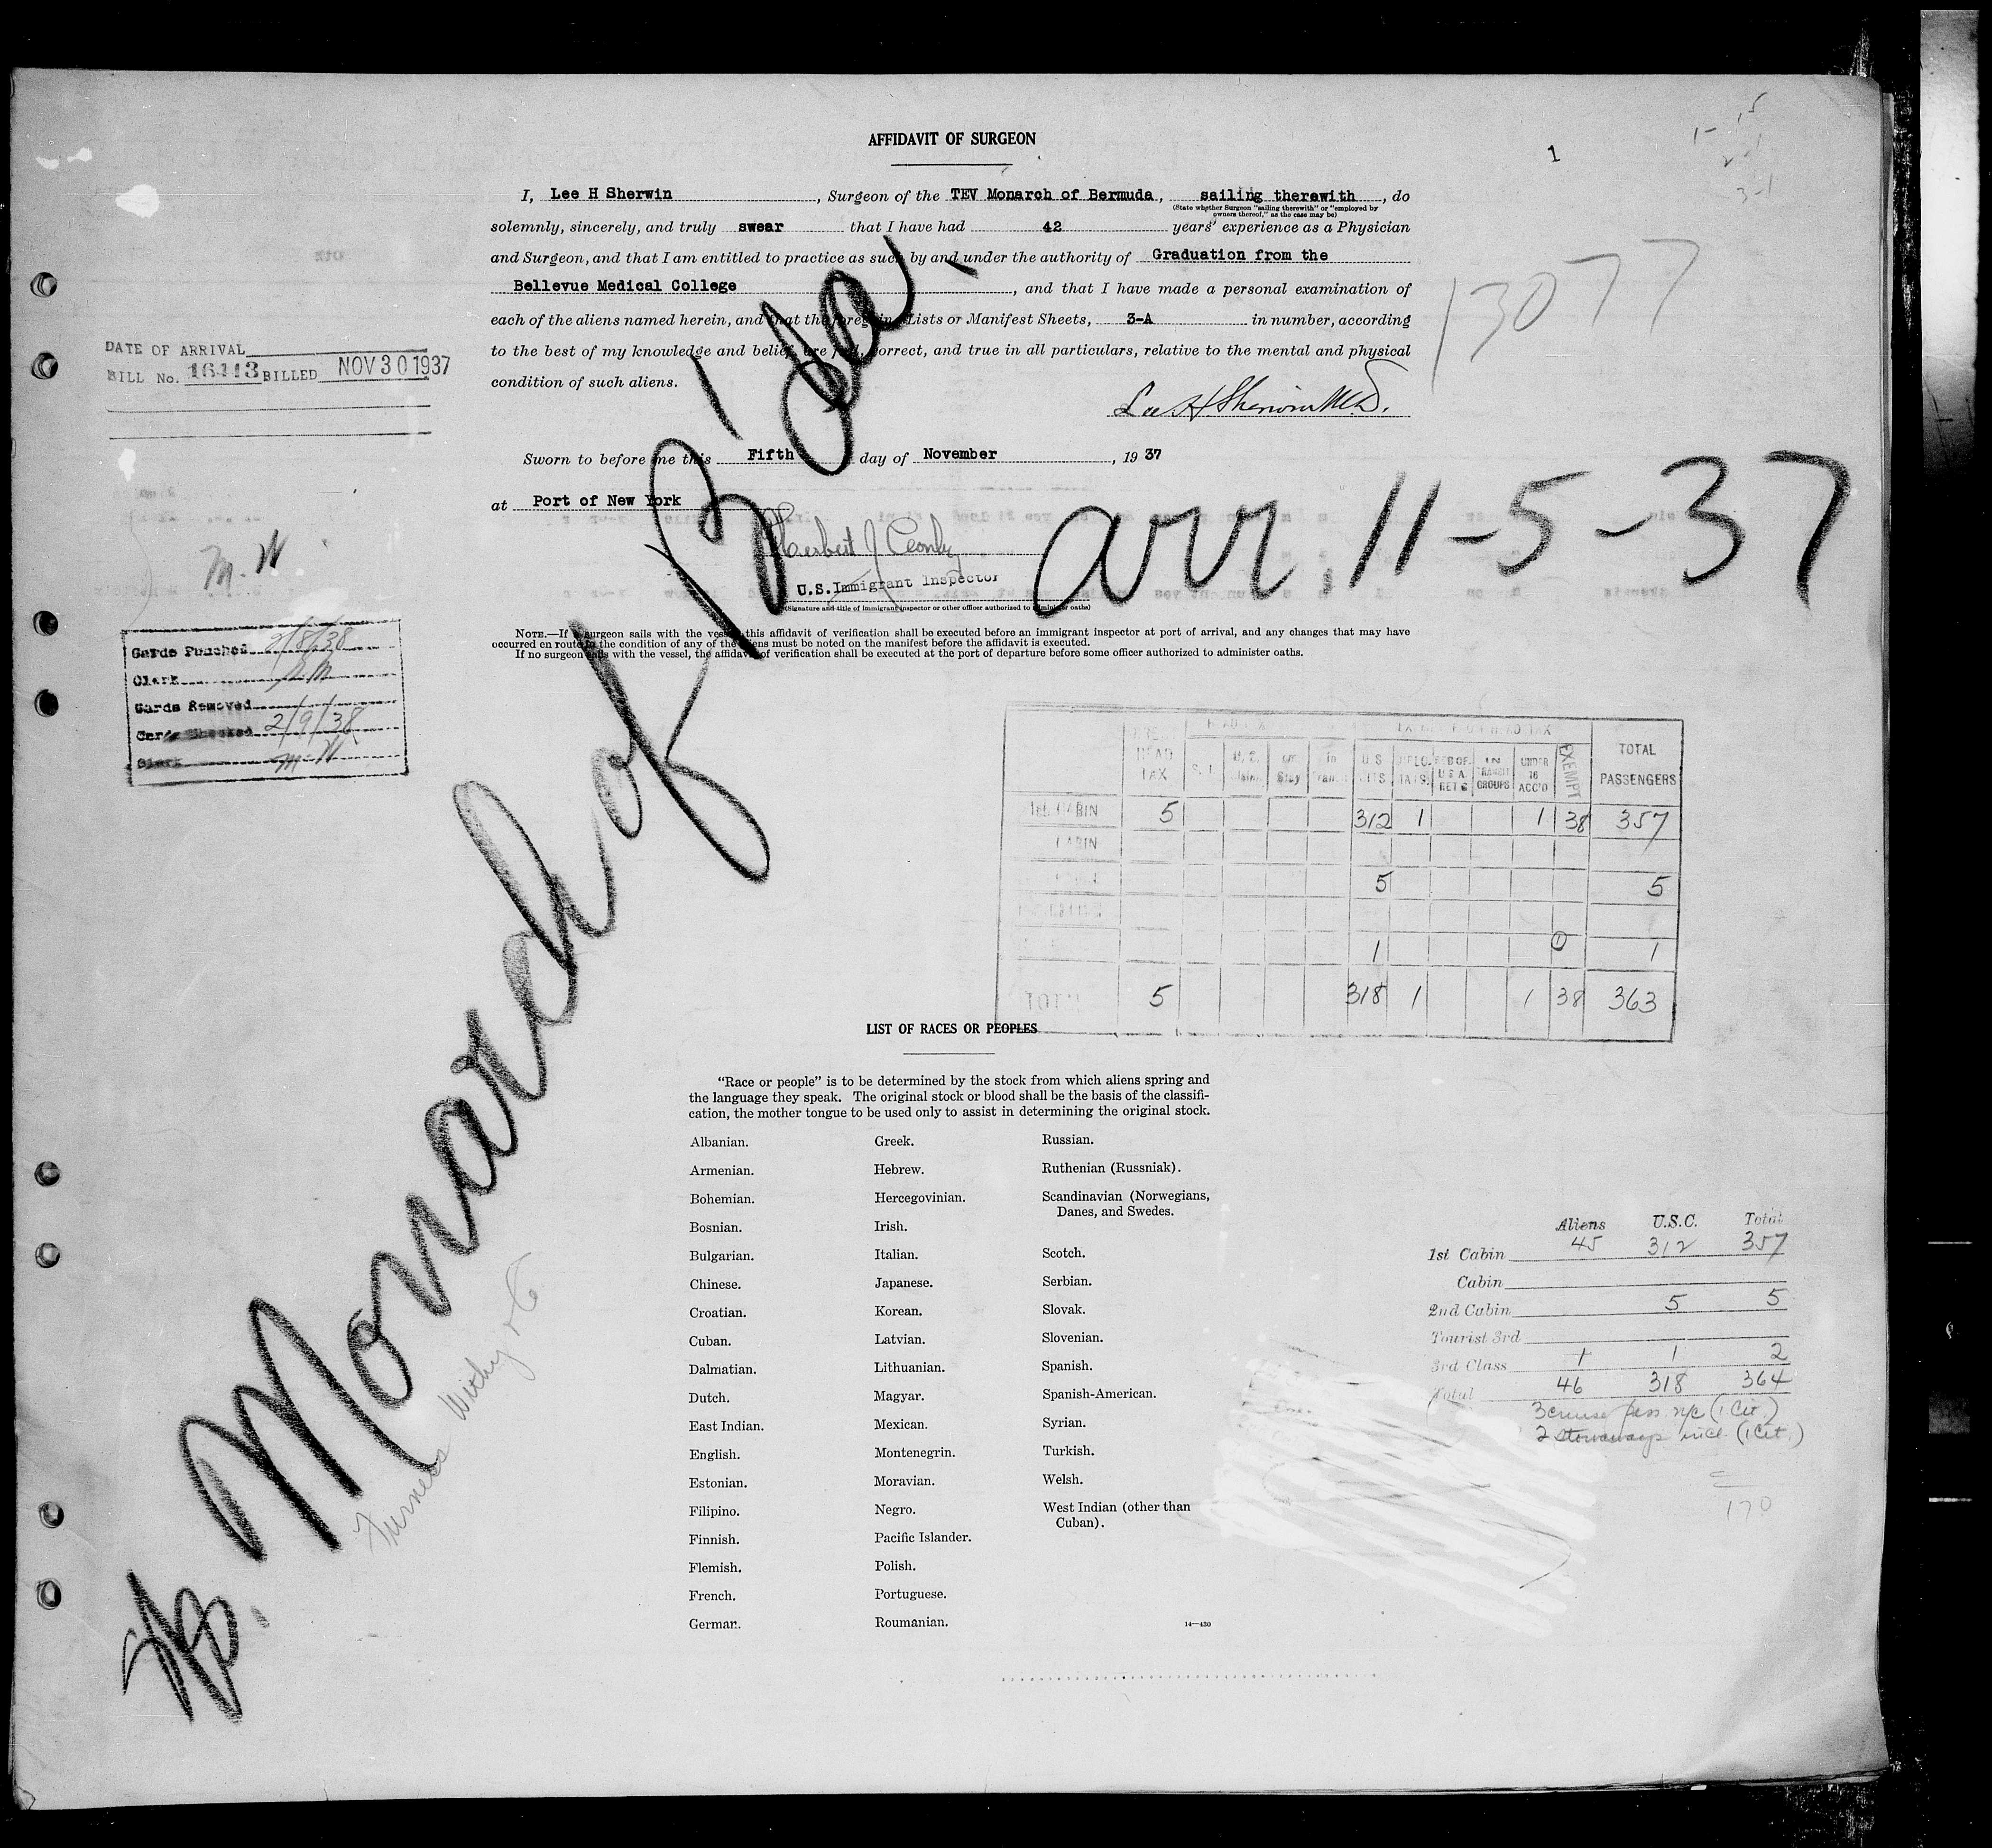 AFFIDAVIT OF SURGEON
1
I, Lee H Sherwin, Surgeon of the TEV Monarch of Bermuda, sailing therewith, do
(State whether Surgeon "sailing therewith" or "employed by
owners thereof," as the case may be)
solemnly, sincerely, and truly swear that I have had 42 years' experience as a Physician
and Surgeon, and that I am entitled to practice as such by and under the authority of Graduation from the
Bellevue Medical College, and that I have made a personal examination of
each of the aliens named herein, and that the foregoing Lists or Manifest Sheets, 3-A in number, according
to the best of my knowledge and belief, are full, correct, and true in all particulars, relative to the mental and physical
condition of such aliens.
Lee H Sherwin M.D.
13077
DATE OF ARRIVAL
BILL No. 16413 BILLED NOV 30 1937
Sworn to before me this Fifth day of November, 1937
at Port of New York
Herbert J
U.S. Immigrant Inspector
(Signature and title of immigrant inspector or other officer authorized to administer oaths)
arr. 11-5-37
M. W
Cards Punched 2/8/38
Clerk
Cards Removed
Cards Checked 2/9/38
Clerk M. W
NOTE.—If a surgeon sails with the vessel, this affidavit of verification shall be executed before an immigrant inspector at port of arrival, and any changes that may have
occurred en route in the condition of any of the aliens must be noted on the manifest before the affidavit is executed.
If no surgeon sails with the vessel, the affidavit of verification shall be executed at the port of departure before some officer authorized to administer oaths.
Monarch of B'da.
Furness Withy
HEAD TAX U.S. CITS DIPLO. TATS. IN TRANSIT GROUPS UNDER 16 ACC'D EXEMPT TOTAL PASSENGERS
1st CABIN 5 312 1 1 38 357
CABIN
5 5
1 1
TOTAL 5 318 1 1 38 363
LIST OF RACES OR PEOPLES
"Race or people" is to be determined by the stock from which aliens spring and
the language they speak. The original stock or blood shall be the basis of the classifi-
cation, the mother tongue to be used only to assist in determining the original stock.
Albanian. Greek. Russian.
Armenian. Hebrew. Ruthenian (Russniak).
Bohemian. Hercegovinian. Scandinavian (Norwegians,
Danes, and Swedes.
Bosnian. Irish.
Bulgarian. Italian. Scotch.
Chinese. Japanese. Serbian.
Croatian. Korean. Slovak.
Cuban. Latvian. Slovenian.
Dalmatian. Lithuanian. Spanish.
Dutch. Magyar. Spanish-American.
East Indian. Mexican. Syrian.
English. Montenegrin. Turkish.
Estonian. Moravian. Welsh.
Filipino. Negro. West Indian (other than
Cuban).
Finnish. Pacific Islander.
Flemish. Polish.
French. Portuguese.
German. Roumanian.
14—430
Aliens U.S.C. Total
1st Cabin 45 312 357
Cabin
2nd Cabin 5 5
Tourist 3rd
3rd Class 1 1 2
Total 46 318 364
3 cruise pass. n/c (1 Cit.)
2 stowaways incl (1 Cit.)
170